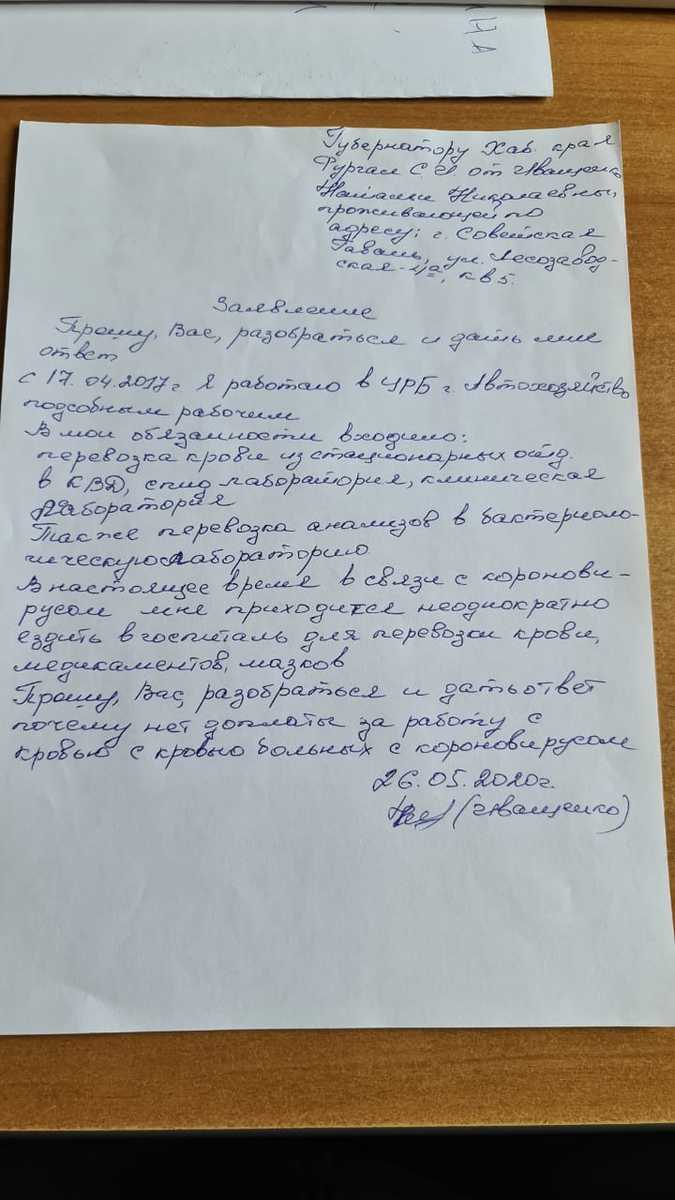 НА
Губернатору Хаб. края
Фургал С.И от Иващенко
Наталии Николаевны,
проживающей по
адресу: г. Советская
Гавань, ул. Лесозавод-
ская-4а, кв 5.
Заявление
Прошу, Вас, разобраться и дать мне
ответ
с 17.04.2017г я работаю в ЦРБ г. Автохозяйство
подсобным рабочим
В мои обязанности входило:
перевозка крови из стационарных отд.
в КВД, спид лаборатория, клиническая
лаборатория
Также перевозка анализов в бактериоло-
гическую лабораторию
В настоящее время в связи с коронови-
русом мне приходится неоднократно
ездить в госпиталь для перевозки крови,
медикаментов, мазков
Прошу, Вас, разобраться и дать ответ
почему нет доплаты за работу с
кровью с кровью больных с короновирусом
26.05.2020г.
(Иващенко)